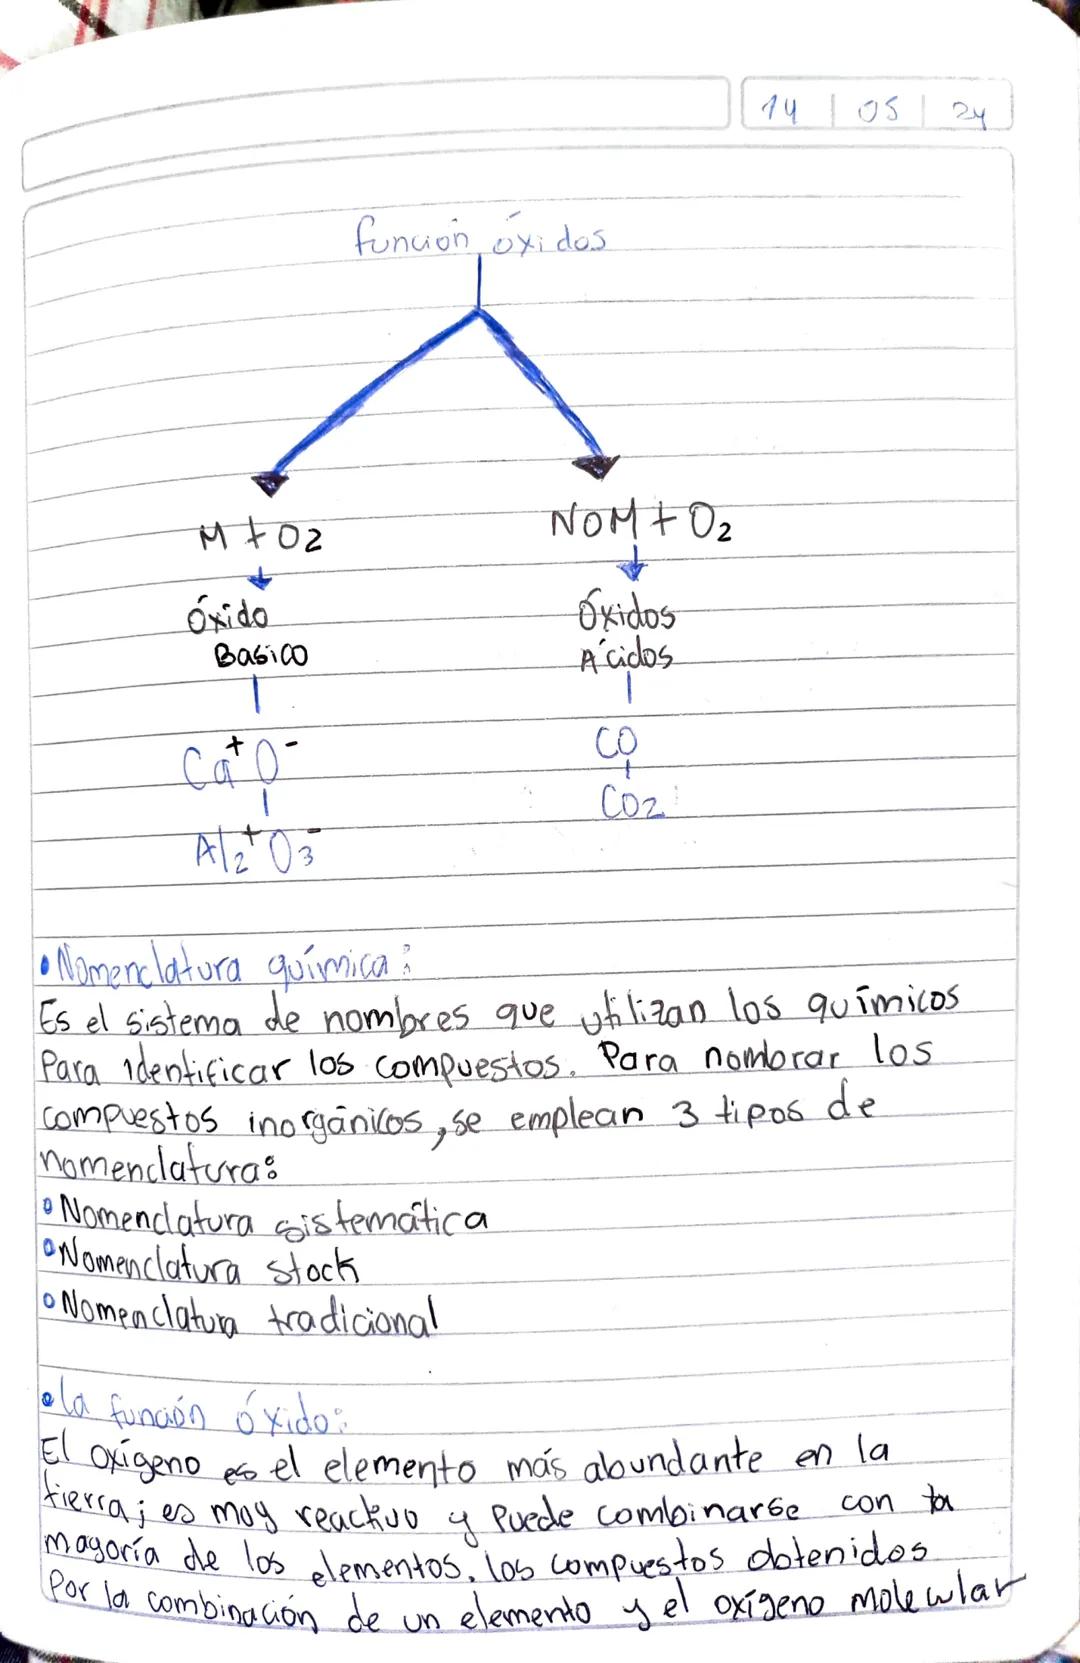 14 | 05 | 24
función óxidos
M + O2
Óxido
Basico
Ca⁺O⁻
Al₂⁺O₃⁻
NOM + O₂
Óxidos
Ácidos
CO
CO₂
• Nomenclatura química:
Es el sistema de nombres que utilizan los químicos
Para identificar los compuestos. Para nombrar los
compuestos inorgánicos, se emplean 3 tipos de
nomenclatura:
• Nomenclatura sistemática
• Nomenclatura stock
• Nomenclatura tradicional
• la función óxido:
El oxígeno es el elemento más abundante en la
tierra; es muy reactivo y Puede combinarse con la
mayoría de los elementos. los compuestos obtenidos
Por la combinación de un elemento y el oxígeno molecular